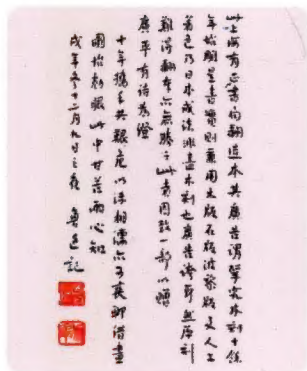 此上海有正书局翻造本其廣告谓研究木刻十餘
年始雕是書實則兼用木版石版波黎版及人工
著色乃日本成法非盡木刻也廣告誇耳然原刻
難得翻本亦無勝于此者因致一部以赠
廣平有詩為證
十年携手共艱危以沫相濡亦可哀聊借畫
圖怡倦眼此中甘苦两心知
戌年冬十二月九日之夜 魯迅記